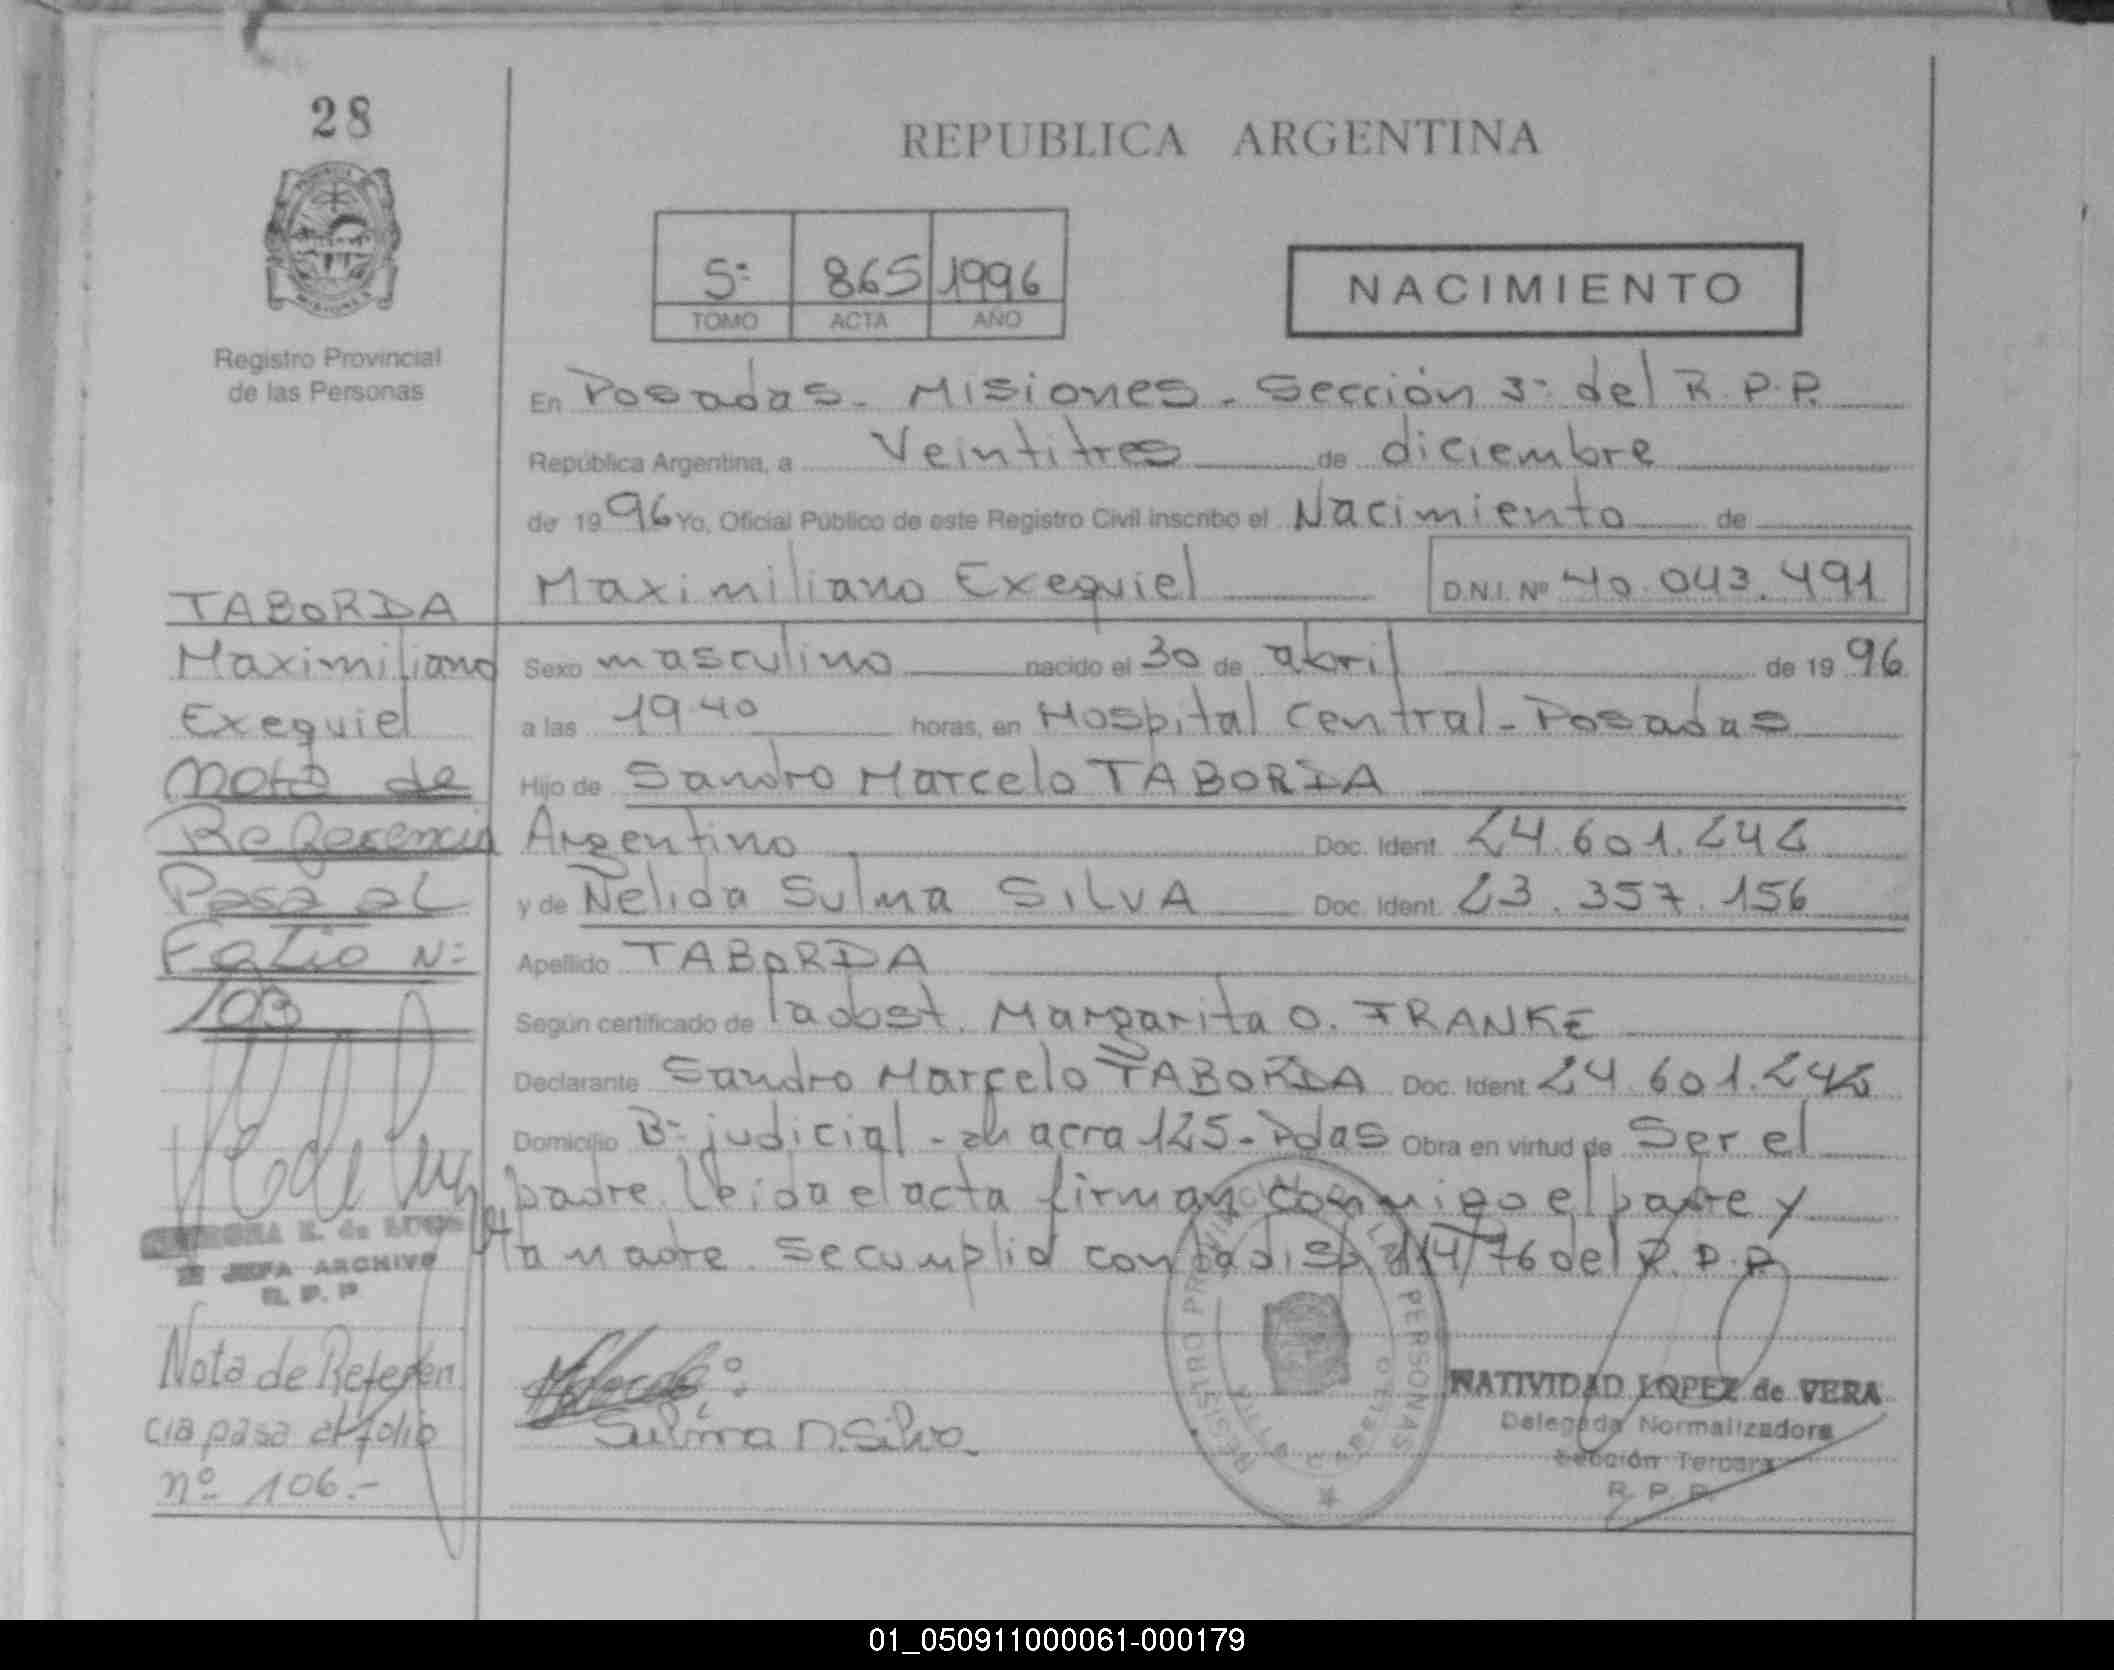 28
REPUBLICA ARGENTINA
5º 865 1996
TOMO ACTA AÑO
NACIMIENTO
Registro Provincial
de las Personas
En Posadas - Misiones - Sección 3º del R.P.P.
República Argentina, a Veintitres de diciembre
de 1996 Yo, Oficial Público de este Registro Civil inscribo el Nacimiento de
Maximiliano Exequiel D.N.I. Nº 40.043.491
TABORDA
Maximiliano
Exequiel
Nota de
Referencia
Pasa al
Folio Nº
103
JEFA ARCHIVO
R. P. P
Nota de Referen
cia pasa al folio
nº 106.-
Sexo masculino nacido el 30 de abril de 1996
a las 19.40 horas, en Hospital Central - Posadas
Hijo de Sandro Marcelo TABORDA
Argentino Doc. Ident. 24.601.242
y de Nelida Sulma SILVA Doc. Ident. 23.357.156
Apellido TABORDA
Según certificado de la obst. Margarita O. FRANKE
Declarante Sandro Marcelo TABORDA Doc. Ident. 24.601.242
Domicilio Bº judicial - chacra 125 - Pdas Obra en virtud de Ser el
padre. Leida el acta firman conmigo el padre y
la madre. Se cumplió con la disp. 114/76 del R.P.P.
Sulma N. Silva
REGISTRO PROVINCIAL DE LAS PERSONAS
NATIVIDAD LOPEZ de VERA
Delegada Normalizadora
Sección Tercera
R. P. P.
01_050911000061-000179